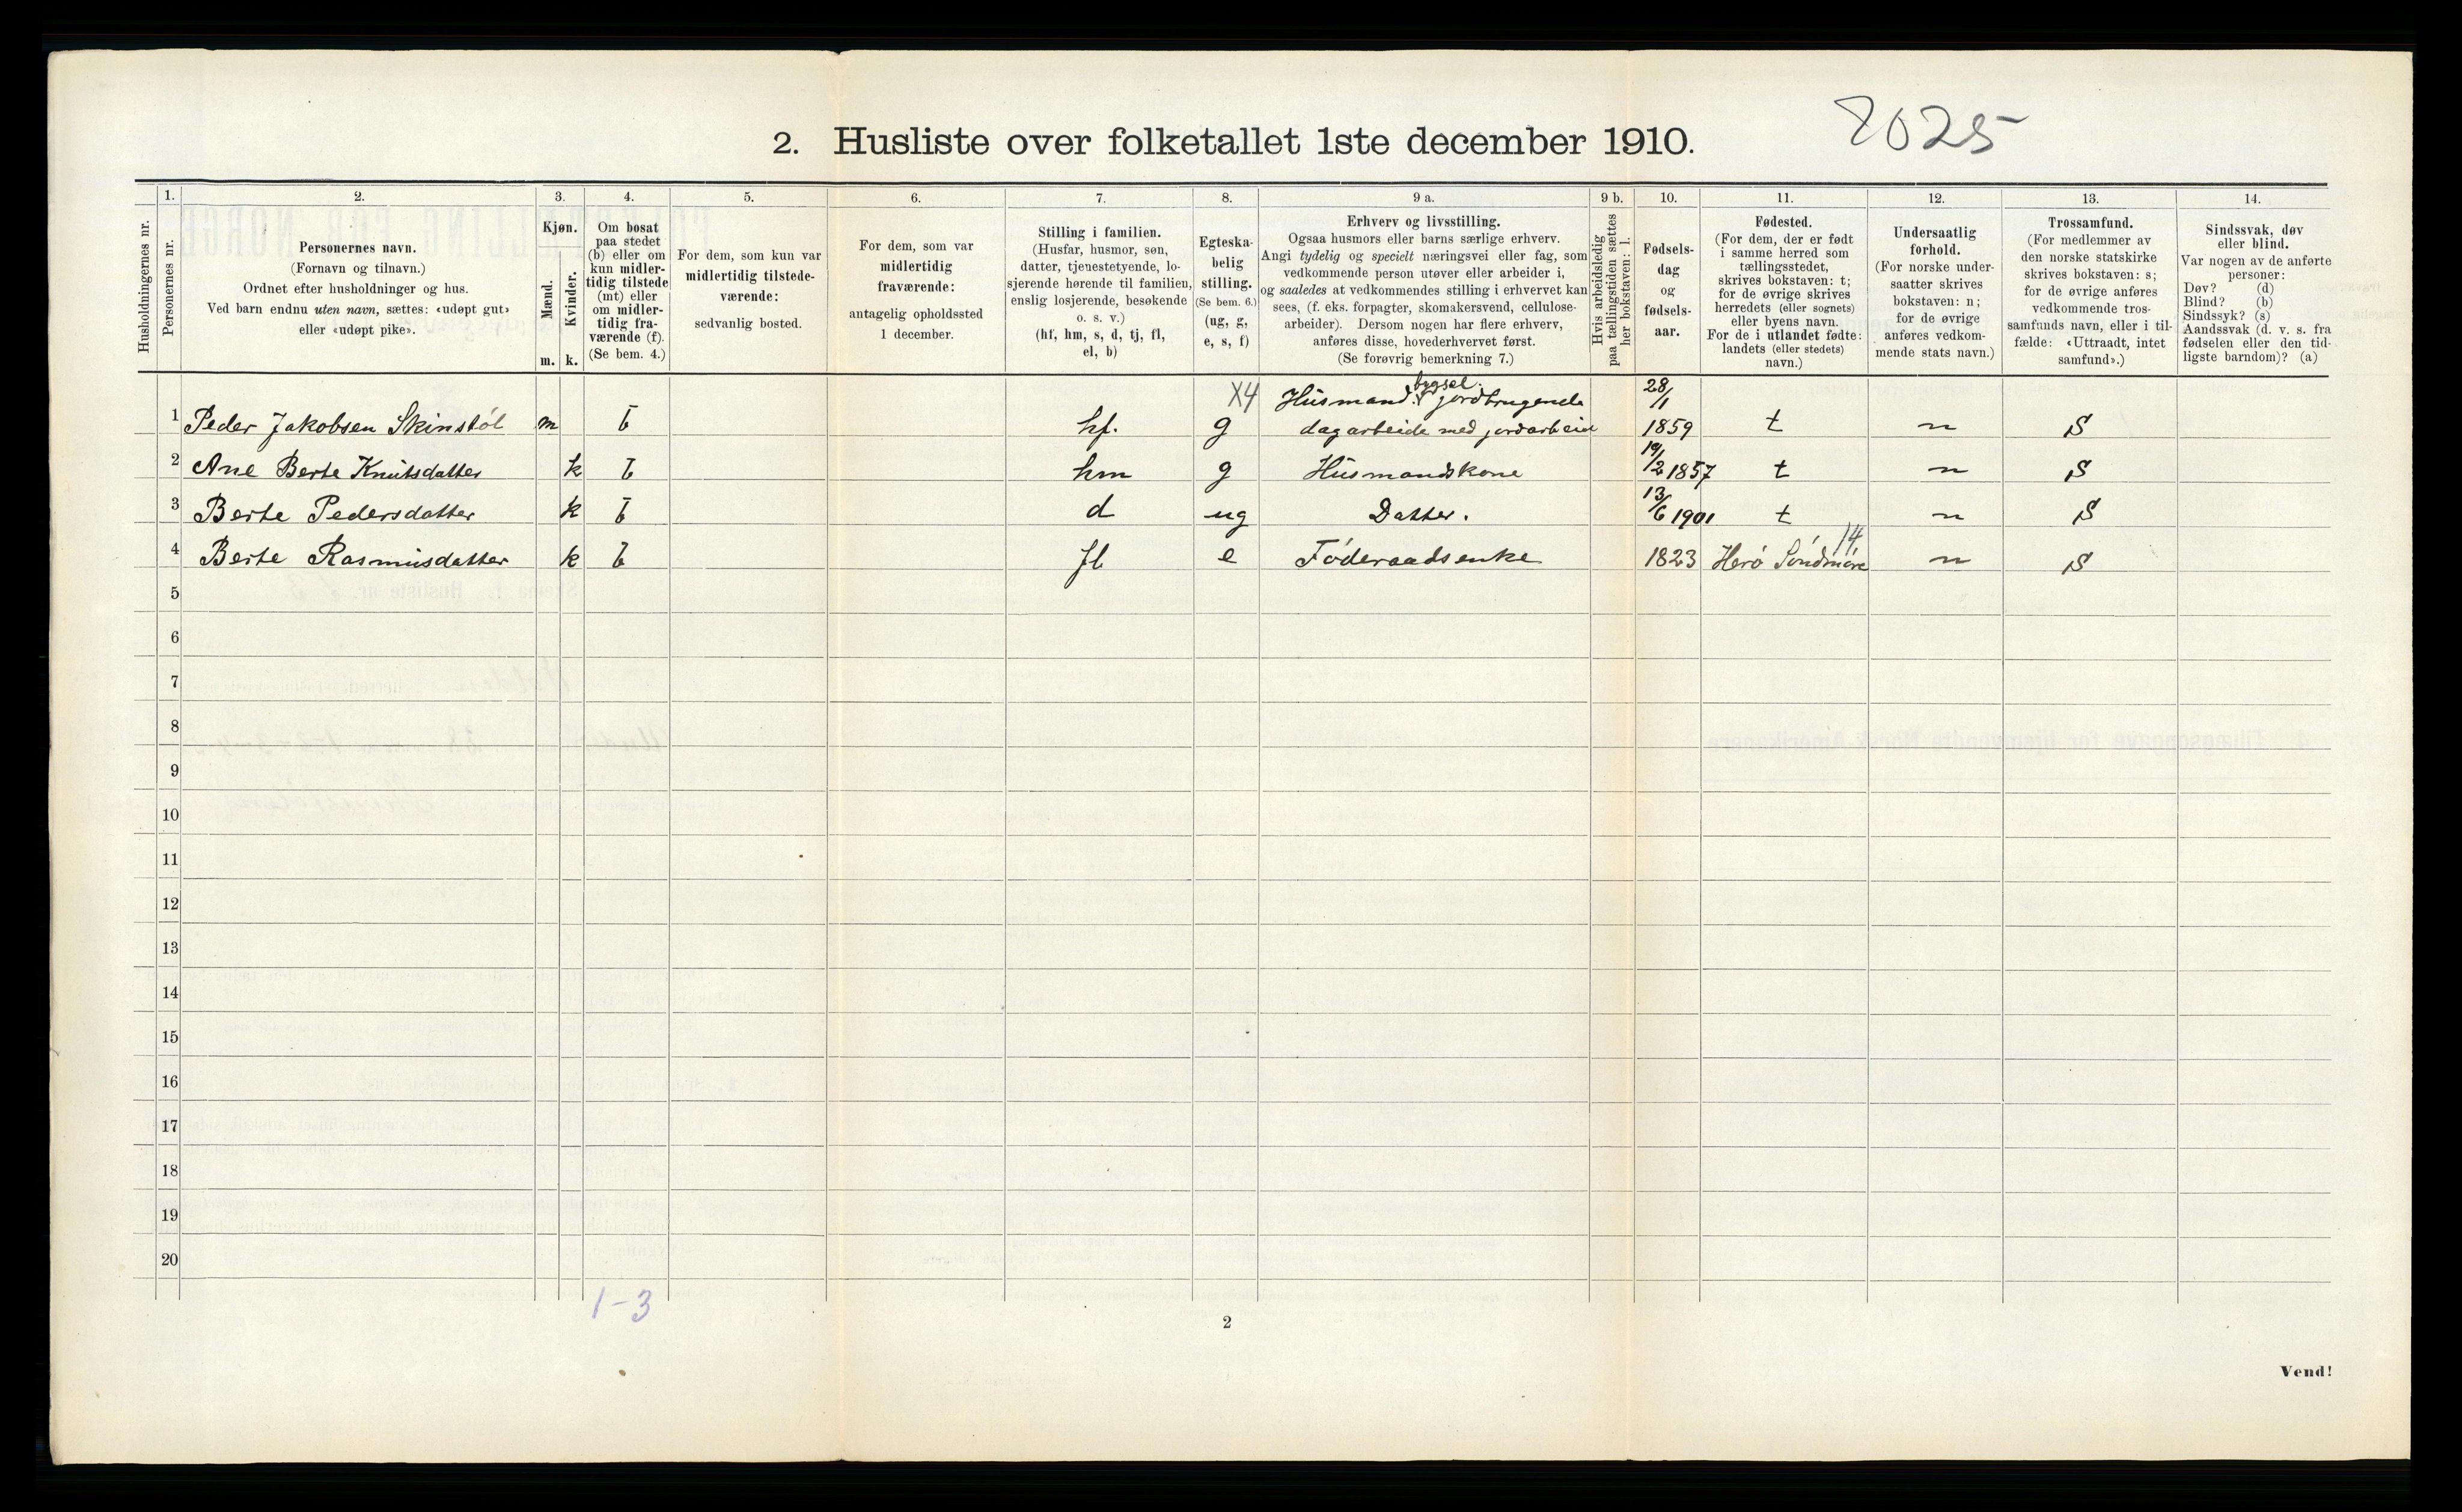 2. Husliste over folketallet 1ste december 1910.
8025
1. 2. 3. 4. 5. 6. 7. 8. 9 a. 9 b. 10. 11. 12. 13. 14.
Husholdningernes nr.
Personernes nr.
Personernes navn.
(Fornavn og tilnavn.)
Ordnet efter husholdninger og hus.
Ved barn endnu uten navn, sættes: «udøpt gut»
eller «udøpt pike».
Kjøn.
Mænd.
Kvinder.
m. k.
Om bosat
paa stedet
(b) eller om
kun midler-
tidig tilstede
(mt) eller
om midler-
tidig fra-
værende (f).
(Se bem. 4.)
For dem, som kun var
midlertidig tilstede-
værende:
sedvanlig bosted.
For dem, som var
midlertidig
fraværende:
antagelig opholdssted
1 december.
Stilling i familien.
(Husfar, husmor, søn,
datter, tjenestetyende, lo-
sjerende hørende til familien,
enslig losjerende, besøkende
o. s. v.)
(hf, hm, s, d, tj, fl,
el, b)
Egteska-
belig
stilling.
(Se bem. 6.)
(ug, g,
e, s, f)
Erhverv og livsstilling.
Ogsaa husmors eller barns særlige erhverv.
Angi tydelig og specielt næringsvei eller fag, som
vedkommende person utøver eller arbeider i,
og saaledes at vedkommendes stilling i erhvervet kan
sees, (f. eks. forpagter, skomakersvend, cellulose-
arbeider). Dersom nogen har flere erhverv,
anføres disse, hovederhvervet først.
(Se forøvrig bemerkning 7.)
Hvis arbeidsledig
paa tællingstiden sættes
her bokstaven: l.
Fødsels-
dag
og
fødsels-
aar.
Fødested.
(For dem, der er født
i samme herred som
tællingsstedet,
skrives bokstaven: t;
for de øvrige skrives
herredets (eller sognets)
eller byens navn.
For de i utlandet fødte:
landets (eller stedets)
navn.)
Undersaatlig
forhold.
(For norske under-
saatter skrives
bokstaven: n;
for de øvrige
anføres vedkom-
mende stats navn.)
Trossamfund.
(For medlemmer av
den norske statskirke
skrives bokstaven: s;
for de øvrige anføres
vedkommende tros-
samfunds navn, eller i til-
fælde: «Uttraadt, intet
samfund».)
Sindssvak, døv
eller blind.
Var nogen av de anførte
personer:
Døv? (d)
Blind? (b)
Sindssyk? (s)
Aandssvak (d. v. s. fra
fødselen eller den tid-
ligste barndom)? (a)
bygsel.
X4 Husmand. jordbrugende 28/1
1 Peder Jakobsen Skinstöl m b hf. g dagarbeide med jordarbeide 1859 t n S
2 Ane Berte Knutsdatter k b hm g Husmandskone /2 1857 t n S
3 Berte Pedersdatter k b d ug Datter. 13/6 1901 t n S
14
4 Berte Rasmusdatter k b fl e Föderaadsenke 1823 Herö Söndmöre n S
5
6
7
8
9
10
11
12
13
14
15
16
17
18
19
20
1-3
2
Vend!